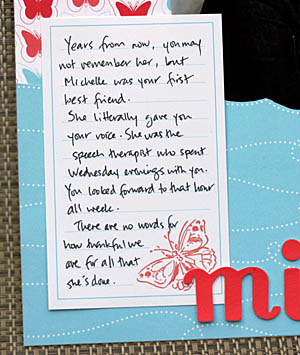 Years from now, you may
not remember her, but
Michelle was your first
best friend.
She literally gave you
your voice. She was the
speech therapist who spent
Wednesday evenings with you.
You looked forward to that hour
all week.
There are no words for
how thankful we
are for all that
she's done.
mi